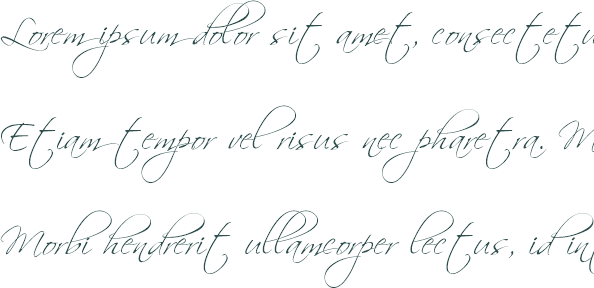 Lorem ipsum dolor sit amet, consectetu
Etiam tempor vel risus nec pharetra. M
Morbi hendrerit ullamcorper lectus, id in